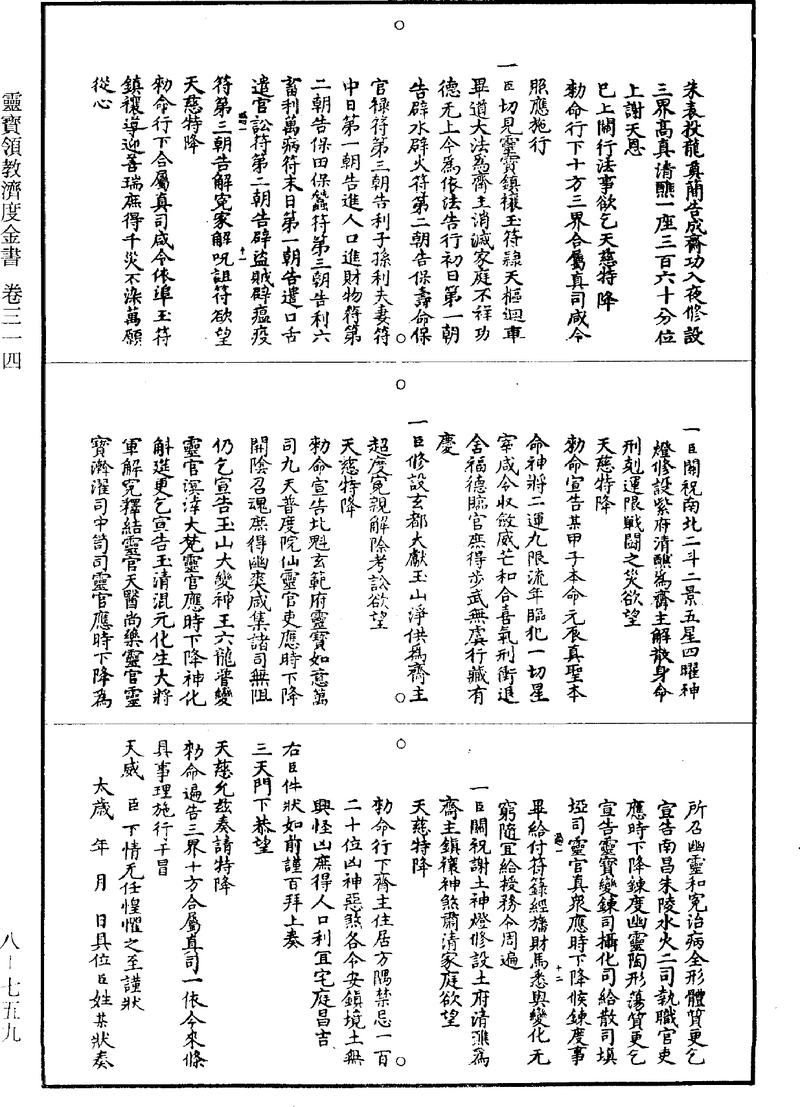 靈寶領教濟度金書 卷三一四
朱表投龍奠簡告成齋功入夜修設
三界高真清醮一座三百六十分位
上謝天恩
已上關行法事欲乞天慈特降
勑命行下十方三界合屬真司咸令
照應施行
一臣切見靈寶鎮禳玉符隸天樞迴車
畢道大法為齋主消滅家庭不祥功
德无上今為依法告行初日第一朝
告辟水辟火符第二朝告保壽命保
官祿符第三朝告利子孫利夫妻符
中日第一朝告進人口進財物符第
二朝告保田保蠶符第三朝告利六
畜利萬病符末日第一朝告遣口舌
遣官訟符第二朝告辟盜賊辟瘟疫
符第三朝告解冤家解呪詛符欲望
天慈特降
勑命行下合屬真司咸令依埠玉符
鎮禳導迎善瑞庶得千災不染萬願
從心
一臣關祝南北二斗二景五星四曜神
燈修設紫府清醮為齋主解散身命
刑剋運限戰鬪之災欲望
天慈特降
勑命宣告某甲子本命元辰真聖本
命神將二運九限流年臨犯一切星
宰咸令收斂威芒和合喜氣刑衝退
舍福德臨官庶得步武無虞行藏有
慶
一臣修設玄都大獻玉山淨供為齋主
超度冤親解除考訟欲望
天慈特降
勑命宣告北魁玄範府靈寶如意萬
司九天普度院仙靈官吏應時下降
開陰召魂庶得幽爽咸集諸司無阻
仍乞宣告玉山大變神王六龍普變
靈官溟涬大梵靈官應時下降神化
斛筵更乞宣告玉清混元化生大將
軍解冤釋結靈官天醫尚藥靈官靈
寶澣濯司巾笥司靈官應時下降為
所召幽靈和冤治病全形體質更乞
宣告南昌朱陵水火二司執職官吏
應時下降鍊度幽靈陶形蕩質更乞
宣告靈寶變鍊司攝化司給散司填
埡司靈官真眾應時下降候鍊度事
畢給付符籙經旛財馬悉與變化无
窮隨宜給授務令周遍
一臣關祝謝土神燈修設土府清醮為
齋主鎮禳神煞肅清家庭欲望
天慈特降
勑命行下齋主住居方隅禁忌一百
二十位凶神惡煞各令安鎮境土無
興怪凶庶得人口利宜宅庭昌吉
右臣件狀如前謹百拜上奏
三天門下恭望
天慈允茲奏請特降
勑命遍告三界十方合屬真司一依今來條
具事理施行干冒
天威 臣下情无任惶懼之至謹狀
太歲 年 月 日具位臣姓某狀奏
八－七五九